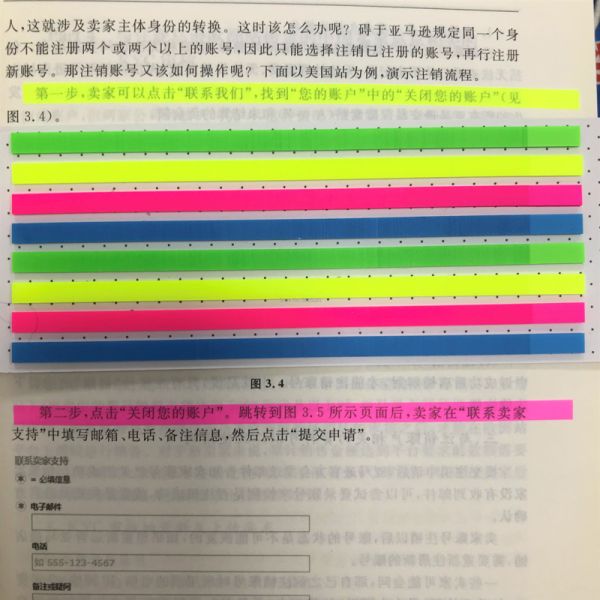 人，这就涉及卖家主体身份的转换。这时该怎么办呢？碍于亚马逊规定同一个身
份不能注册两个或两个以上的账号，因此只能选择注销已注册的账号，再行注册
新账号。那注销账号又该如何操作呢？下面以美国站为例，演示注销流程。
第一步，卖家可以点击“联系我们”，找到“您的账户”中的“关闭您的账户”（见
图 3.4）。
图 3.4
第二步，点击“关闭您的账户”。跳转到图 3.5 所示页面后，卖家在“联系卖家
支持”中填写邮箱、电话、备注信息，然后点击“提交申请”。
联系卖家支持
* = 必填信息
* 电子邮件
电话
如 555-123-4567
备注或疑问